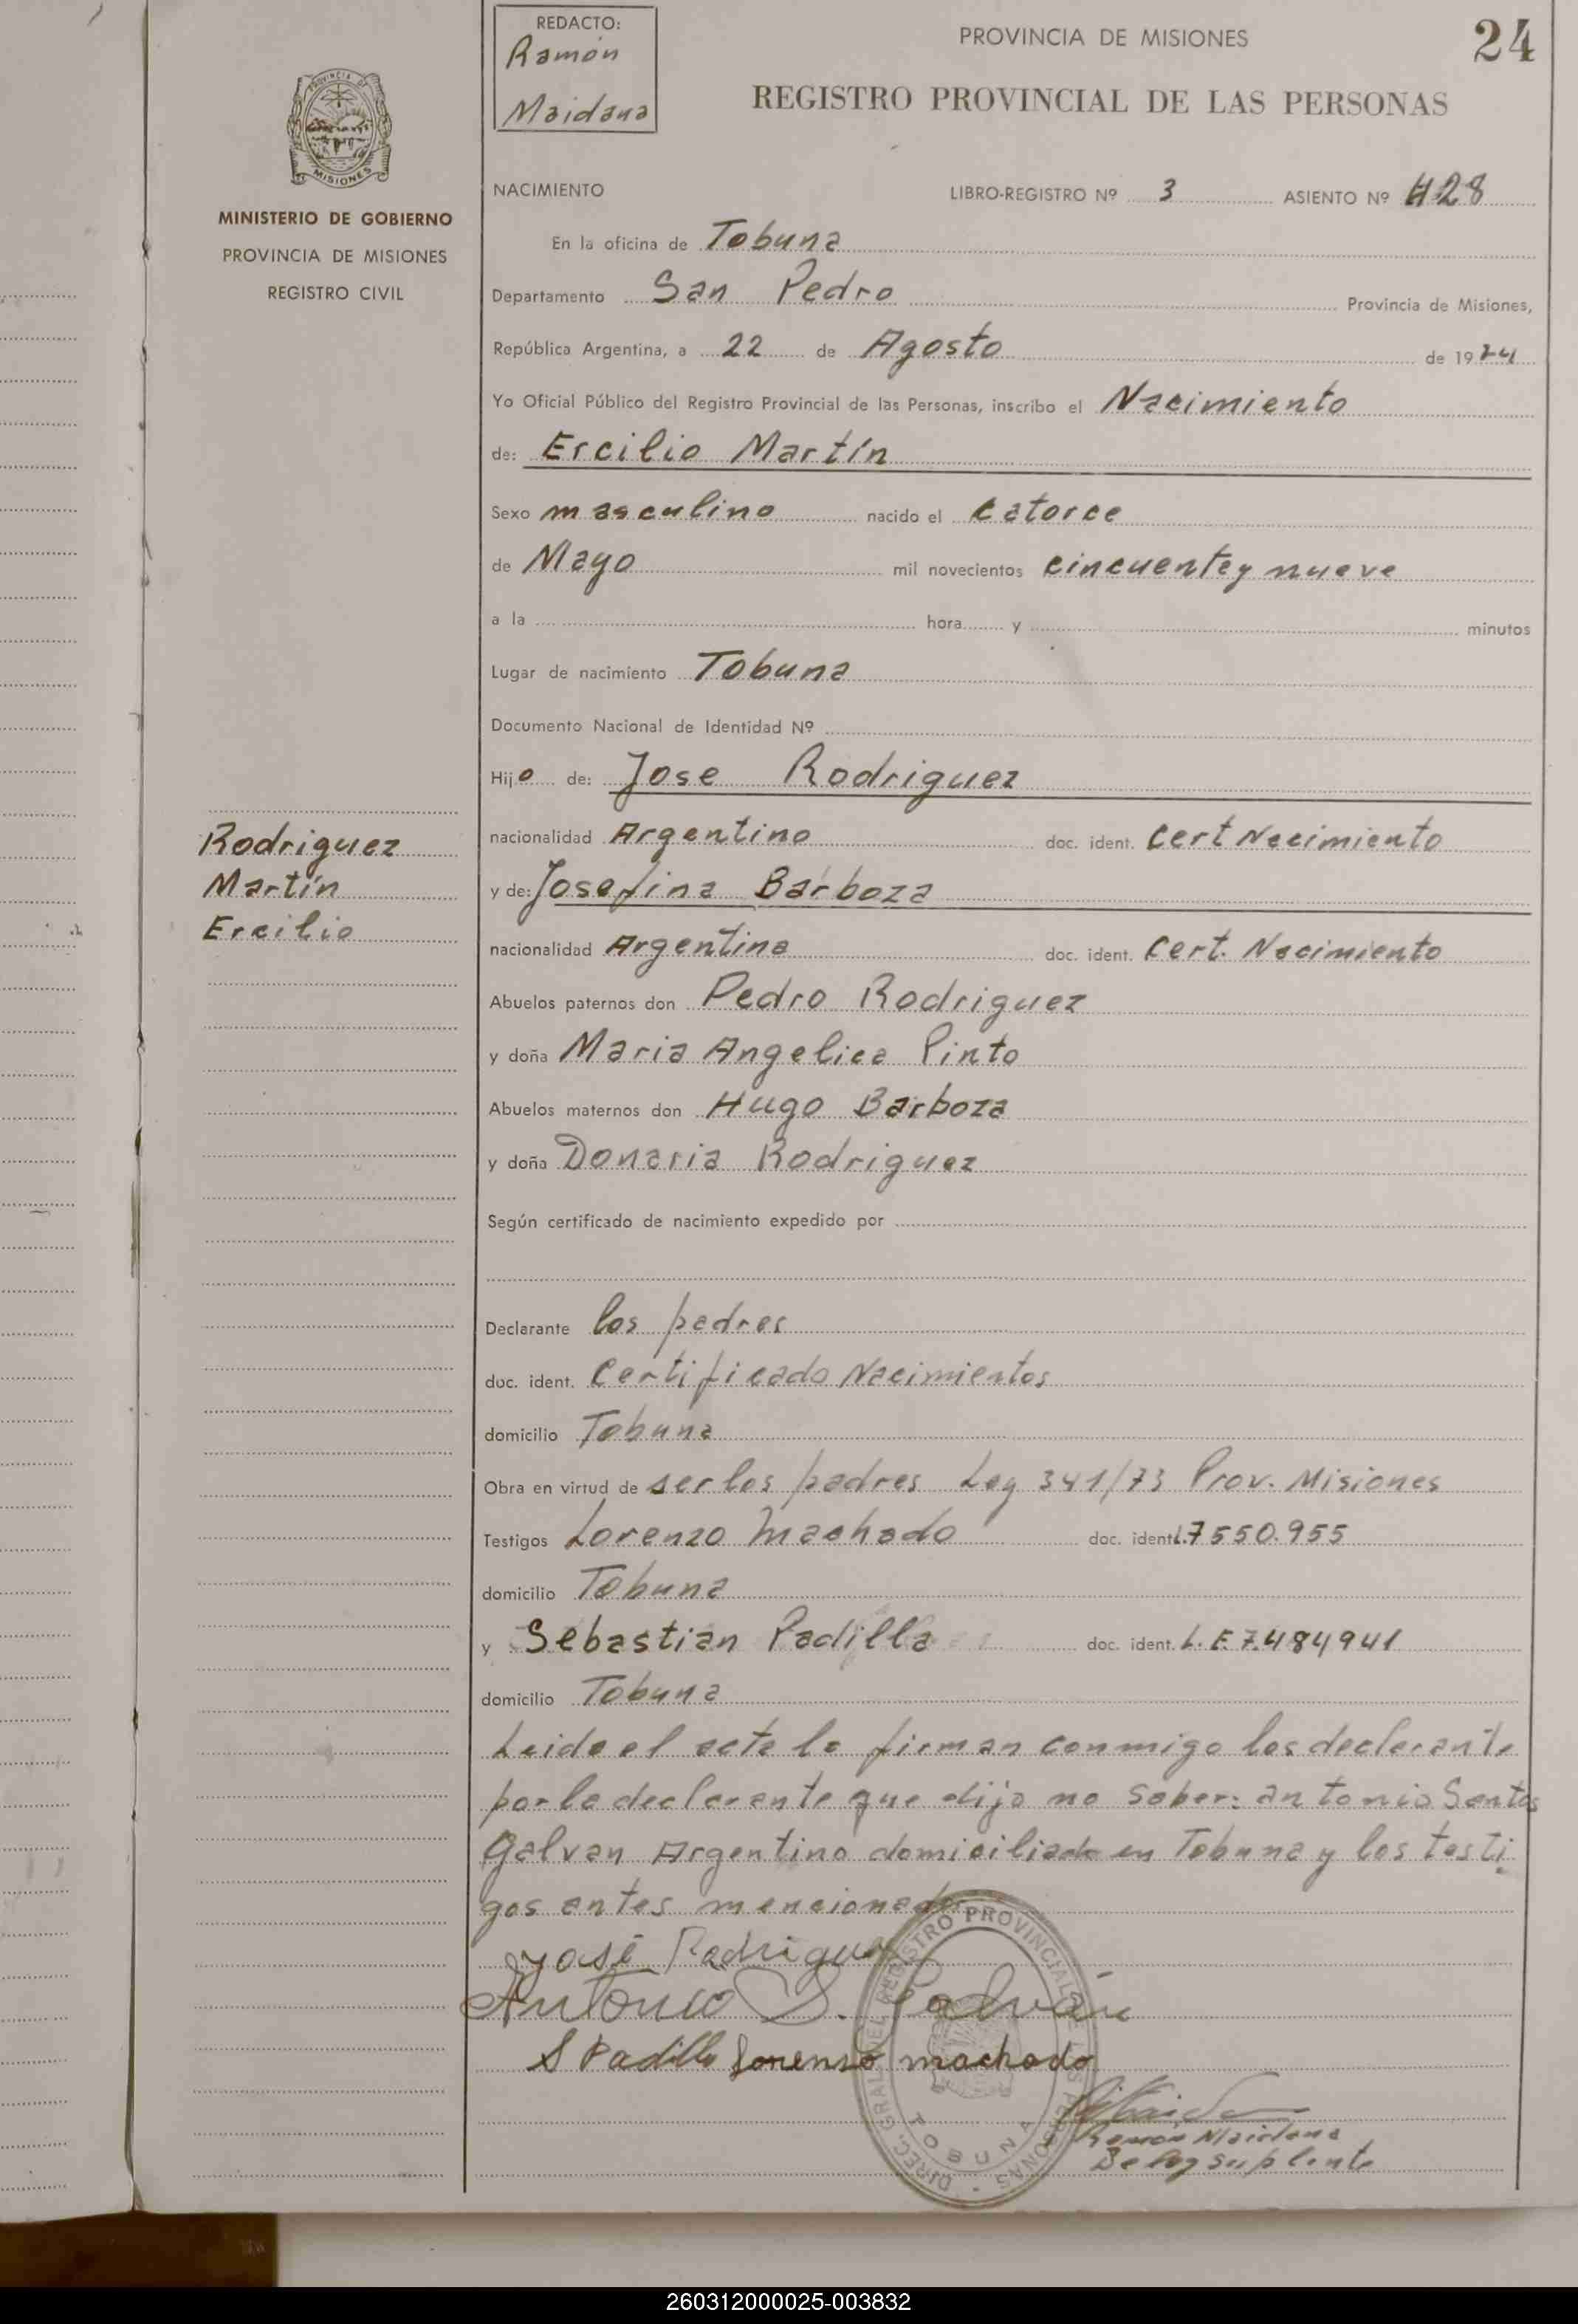 REDACTO:
Ramón
Maidana
PROVINCIA DE MISIONES
24
REGISTRO PROVINCIAL DE LAS PERSONAS
PROVINCIA DE
MISIONES
MINISTERIO DE GOBIERNO
PROVINCIA DE MISIONES
REGISTRO CIVIL
NACIMIENTO LIBRO-REGISTRO Nº 3 ASIENTO Nº 428
En la oficina de Tobuna
Departamento San Pedro Provincia de Misiones,
República Argentina, a 22 de Agosto de 1974
Yo Oficial Público del Registro Provincial de las Personas, inscribo el Nacimiento
de: Ercilio Martín
Sexo masculino nacido el catorce
de Mayo mil novecientos cincuentey nueve
a la hora y minutos
Lugar de nacimiento Tobuna
Documento Nacional de Identidad Nº
Hijo de: Jose Rodriguez
Rodriguez
Martín
Ercilio
nacionalidad Argentino doc. ident. Cert Nacimiento
y de: Josefina Barboza
nacionalidad Argentina doc. ident. Cert. Nacimiento
Abuelos paternos don Pedro Rodriguez
y doña Maria Angelica Pinto
Abuelos maternos don Hugo Barboza
y doña Donaria Rodriguez
Según certificado de nacimiento expedido por
Declarante los padres
doc. ident. Certificado Nacimientos
domicilio Tobuna
Obra en virtud de ser los padres Ley 341/73 Prov. Misiones
Testigos Lorenzo Machado doc. ident. 7550.955
domicilio Tobuna
y Sebastián Padilla doc. ident. L.E. 7.484941
domicilio Tobuna
Leida el acta la firman conmigo los declarante
por la declarante que dijo no saber: antonio Santos
Galvan Argentino domiciliado en Tobuna y los testi
gos antes mencionados
José Rodriguez
Antonio S. Galván
S Padilla Lorenso machado
Ramón Maidana
Deleg suplente
DIREC. GRAL. DEL REGISTRO PROVINCIAL DE LAS PERSONAS
TOBUNA
260312000025-003832